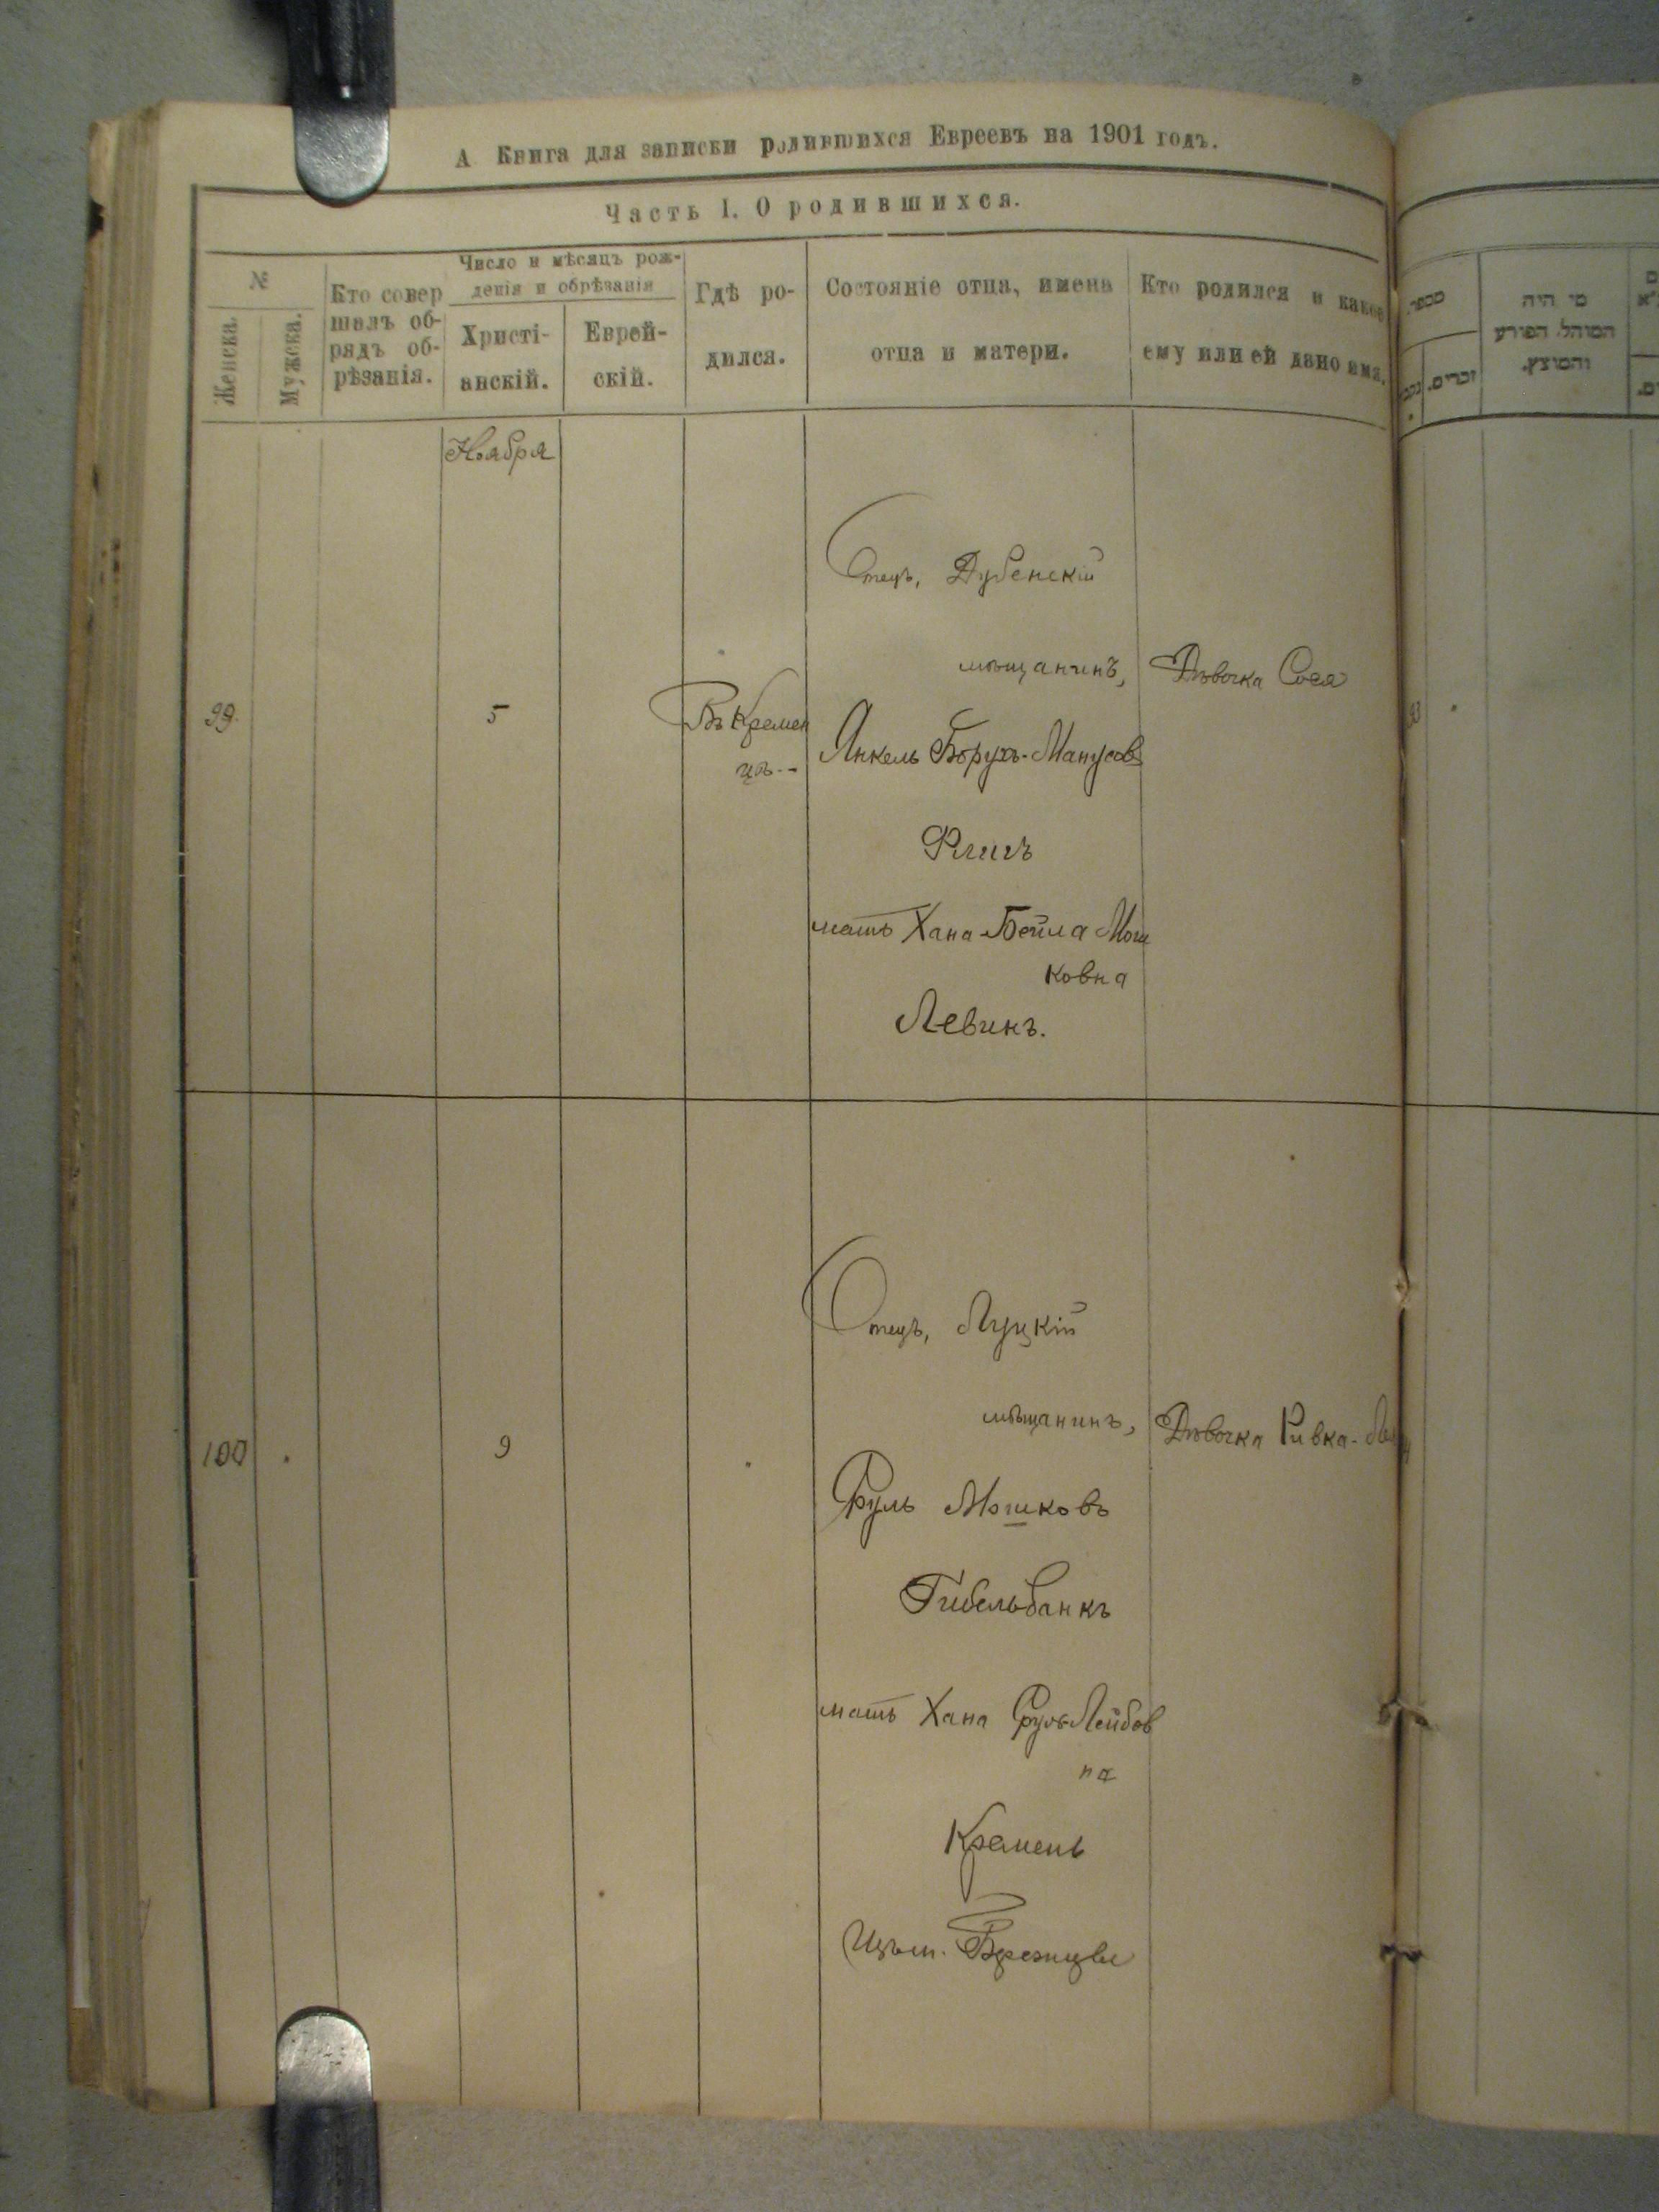 А Книга для записки родившихся Евреевъ на 1901 годъ.
Часть I. О родившихся.
№
Женска.
Мужска.
Кто совер
шалъ об-
рядъ об-
рѣзанія.
Число и мѣсяцъ рож-
денія и обрѣзанія
Христі-
анскій.
Еврей-
скій.
Гдѣ ро-
дился.
Состояніе отца, имена
отца и матери.
Кто родился и какое
ему или ей дано имя.
Ноября
99.
5
Въ Кремен
цѣ--
Отецъ, Дубенскій
мѣщанинъ,
Янкель Борухъ-Манусовъ
Флигъ
мать Хана-Бейла Мош
ковна
Левинъ.
Дѣвочка Сося
100
9
Отецъ, Луцкій
мѣщанинъ,
Сруль Мошковъ
Гибельбанкъ
мать Хана Сруль-Лейбов
на
Кремень
Дѣвочка Ривка-
מספר
זכרים.
מי היה
המוהל הפורע
והמוצץ.